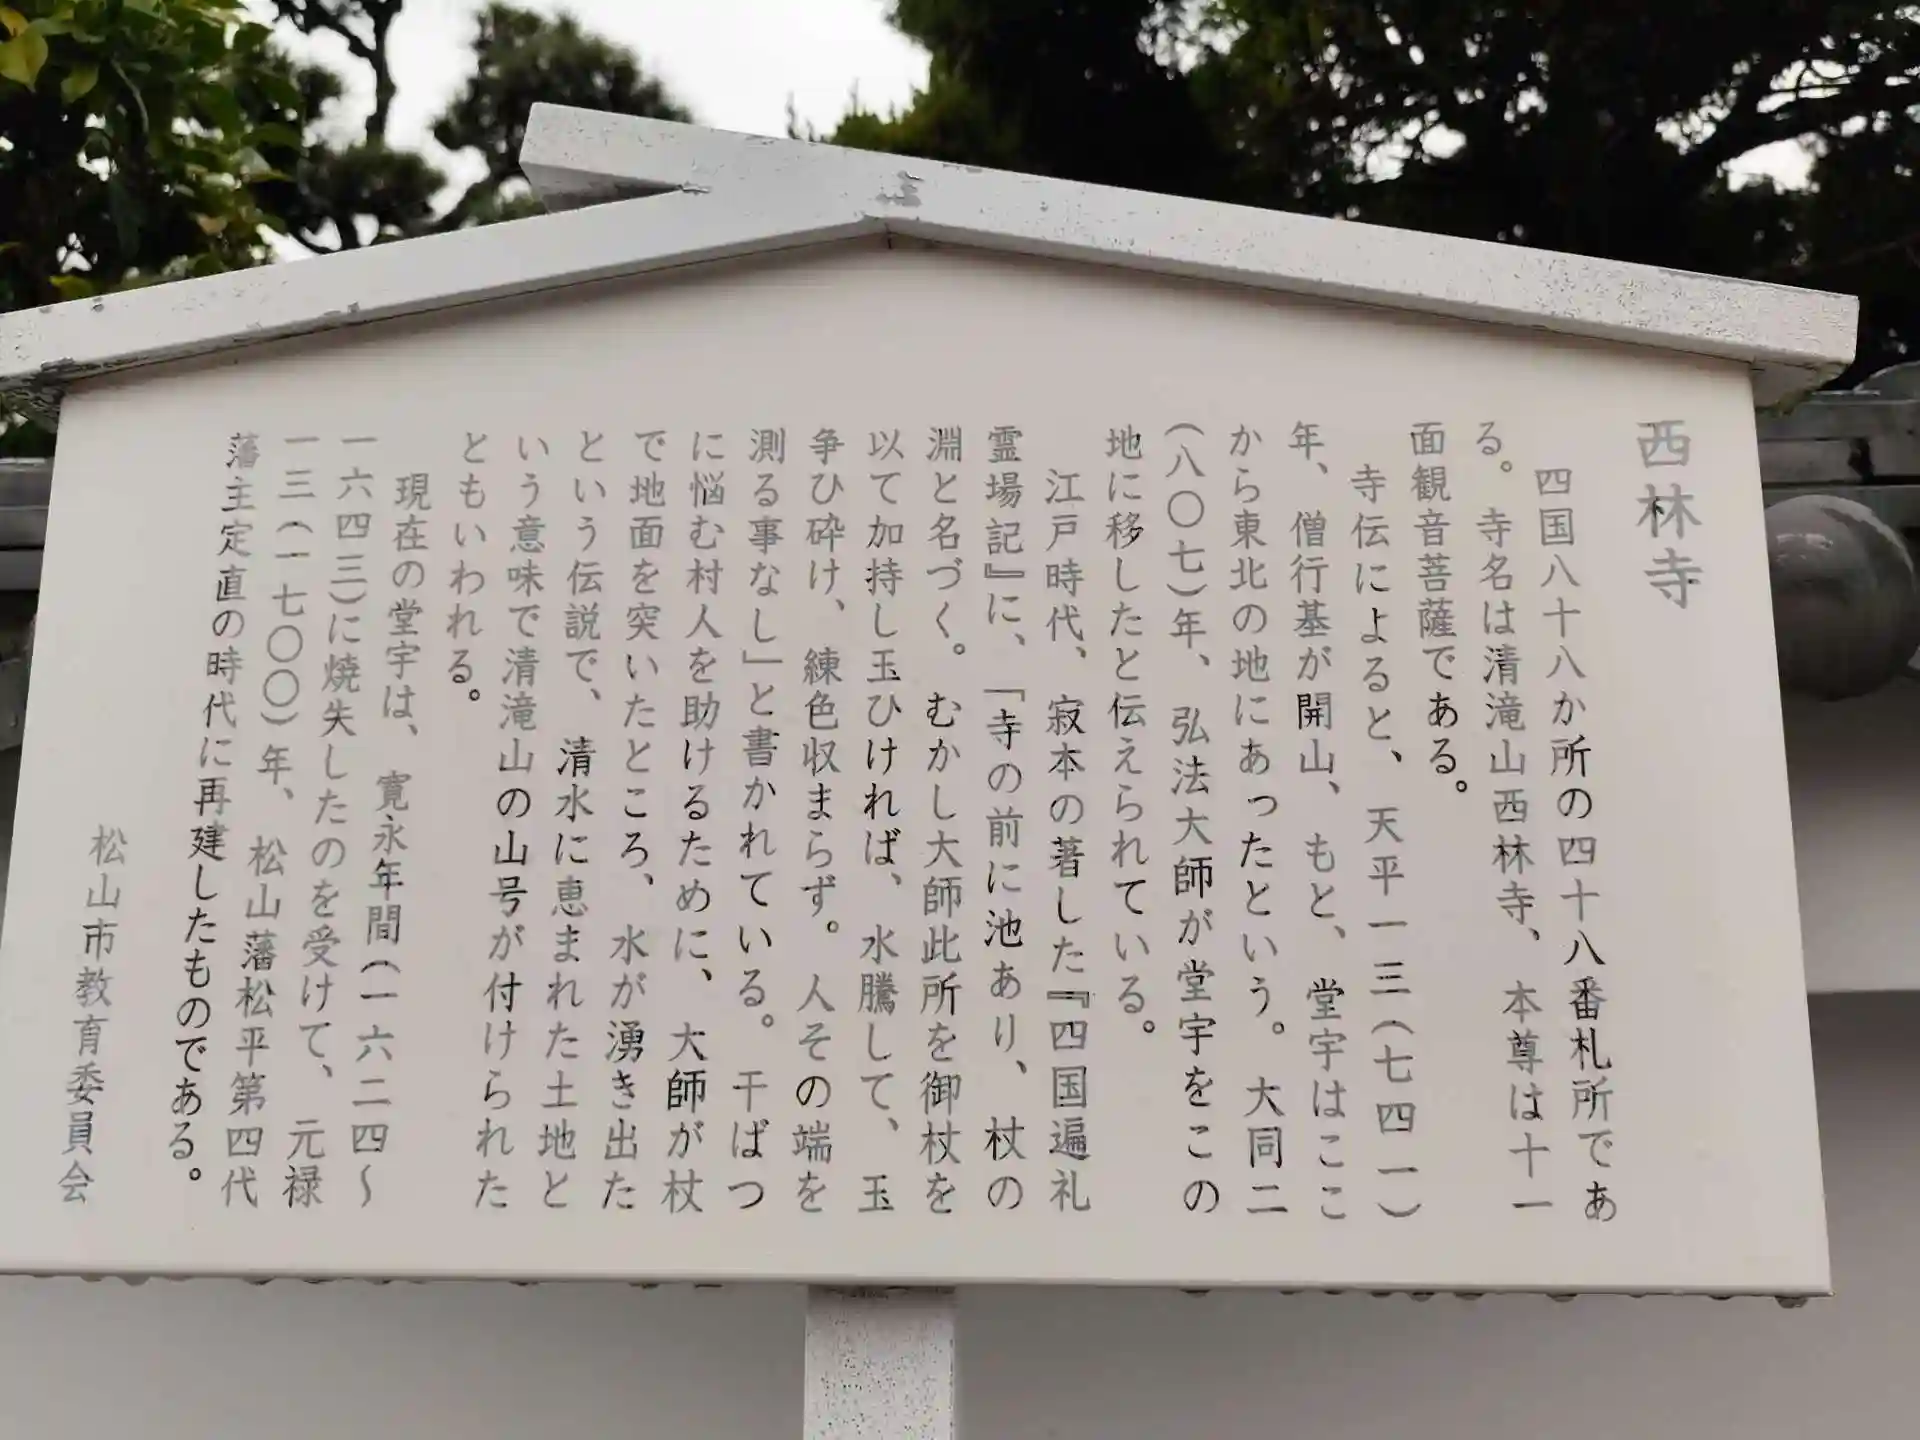 西林寺
四国八十八か所の四十八番札所であ
る。寺名は清滝山西林寺、本尊は十一
面観音菩薩である。
寺伝によると、天平一三(七四一)
年、僧行基が開山、もと、堂宇はここ
から東北の地にあったという。大同二
(八〇七)年、弘法大師が堂宇をこの
地に移したと伝えられている。
江戸時代、寂本の著した『四国遍礼
霊場記』に、「寺の前に池あり、杖の
淵と名づく。むかし大師此所を御杖を
以て加持し玉ひければ、水騰して、玉
争ひ砕け、練色収まらず。人その端を
測る事なし」と書かれている。干ばつ
に悩む村人を助けるために、大師が杖
で地面を突いたところ、水が湧き出た
という伝説で、清水に恵まれた土地と
いう意味で清滝山の山号が付けられた
ともいわれる。
現在の堂宇は、寛永年間(一六二四〜
一六四三)に焼失したのを受けて、元禄
一三(一七〇〇)年、松山藩松平第四代
藩主定直の時代に再建したものである。
松山市教育委員会